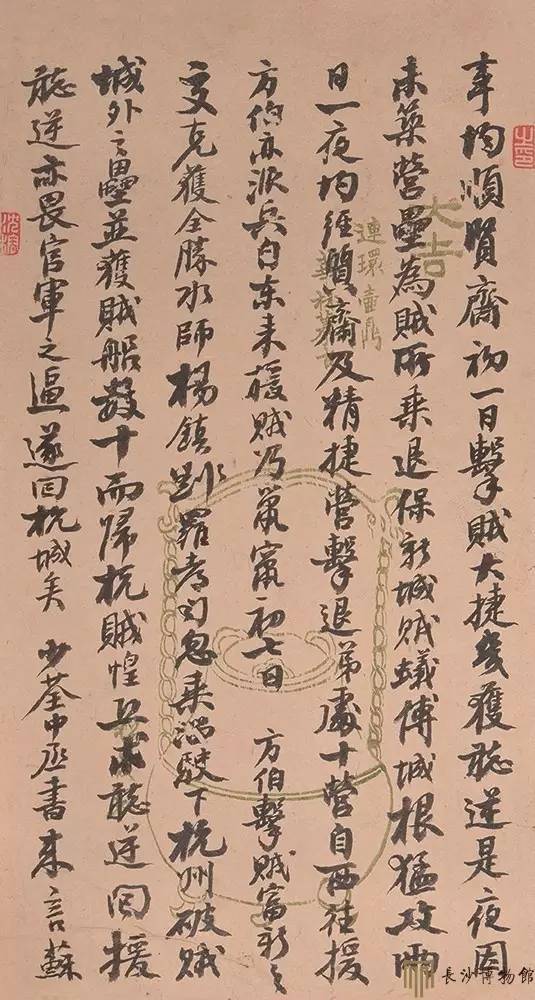 事均順賢齋初一日擊賊大捷幾獲聽逆是夜因
未築營壘為賊所乘退保新城賊蟻傅城根猛攻兩
日一夜均經賢齋及精捷營擊退弟處十營自西往援
方伯亦派兵自東來援賊乃鼠竄初七日
方伯擊賊富新之
交克獲全勝水師楊鎮劉羅
忽乘潮駛下杭州破賊
城外之壘並獲賊船數十而歸杭賊惶
求聽逆回援
聽逆亦畏官軍之逼遂回杭城矣
少荃中丞書來言蘇
大吉
連環壺
長沙博物館